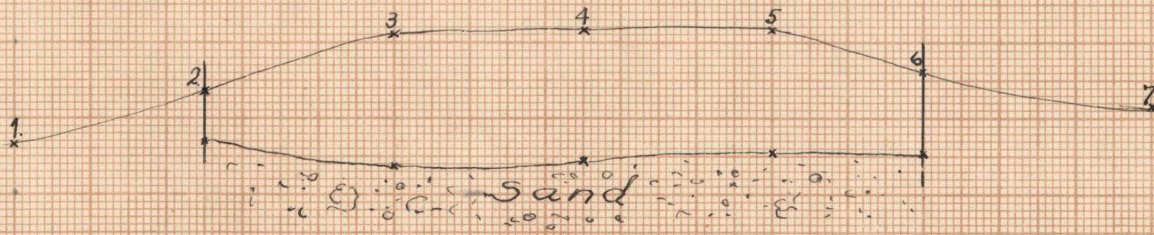 1 2 3 4 5 6 7
Sand